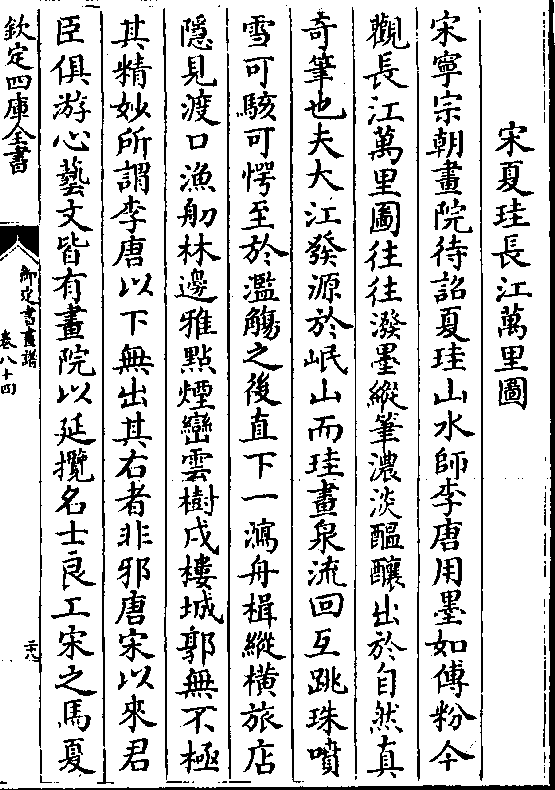 宋夏珪長江萬里圖
宋寧宗朝畫院待詔夏珪山水師李唐用墨如傅粉今
觀長江萬里圖往往潑墨縱筆濃淡醖釀出於自然真
奇筆也夫大江發源於岷山而珪畫泉流回互跳珠噴
雪可駭可愕至於濫觴之後直下一瀉舟楫縱橫旅店
隱見渡口漁舠林邊雅點煙巒雲樹戍樓城郭無不極
其精妙所謂李唐以下無出其右者非邪唐宋以來君
臣俱游心藝文皆有畫院以延攬名士良工宋之馬夏
欽定四庫全書
御定書畫譜
卷八十四